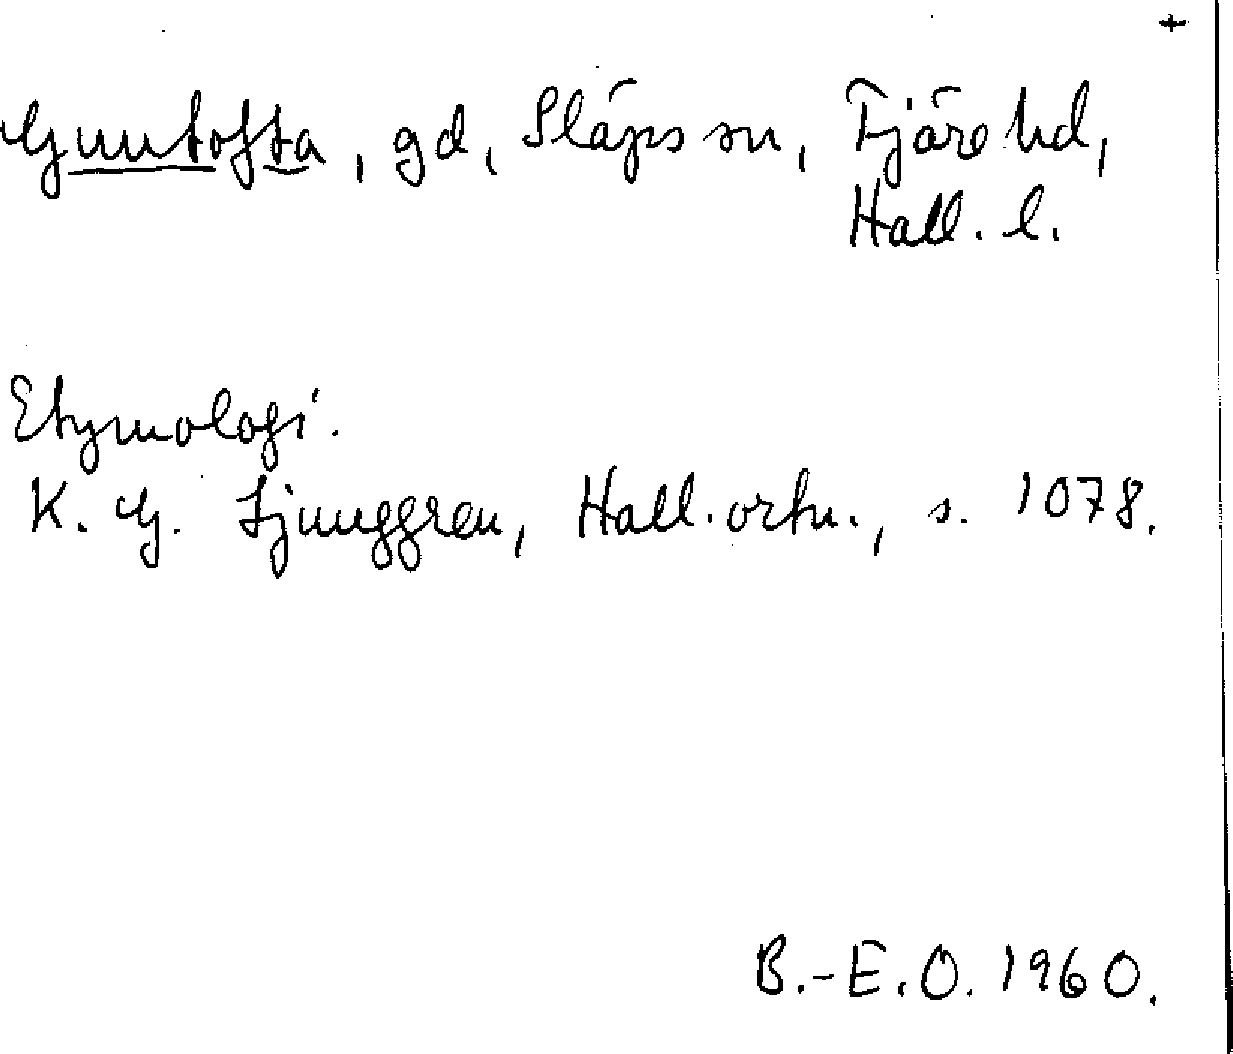 +
Gunntofta, gd, Släps sn, Fjäre hd,
Hall. l.
Etymologi.
K. G. Ljunggren, Hall. ortn., s. 1078.
B.-E. O. 1960.